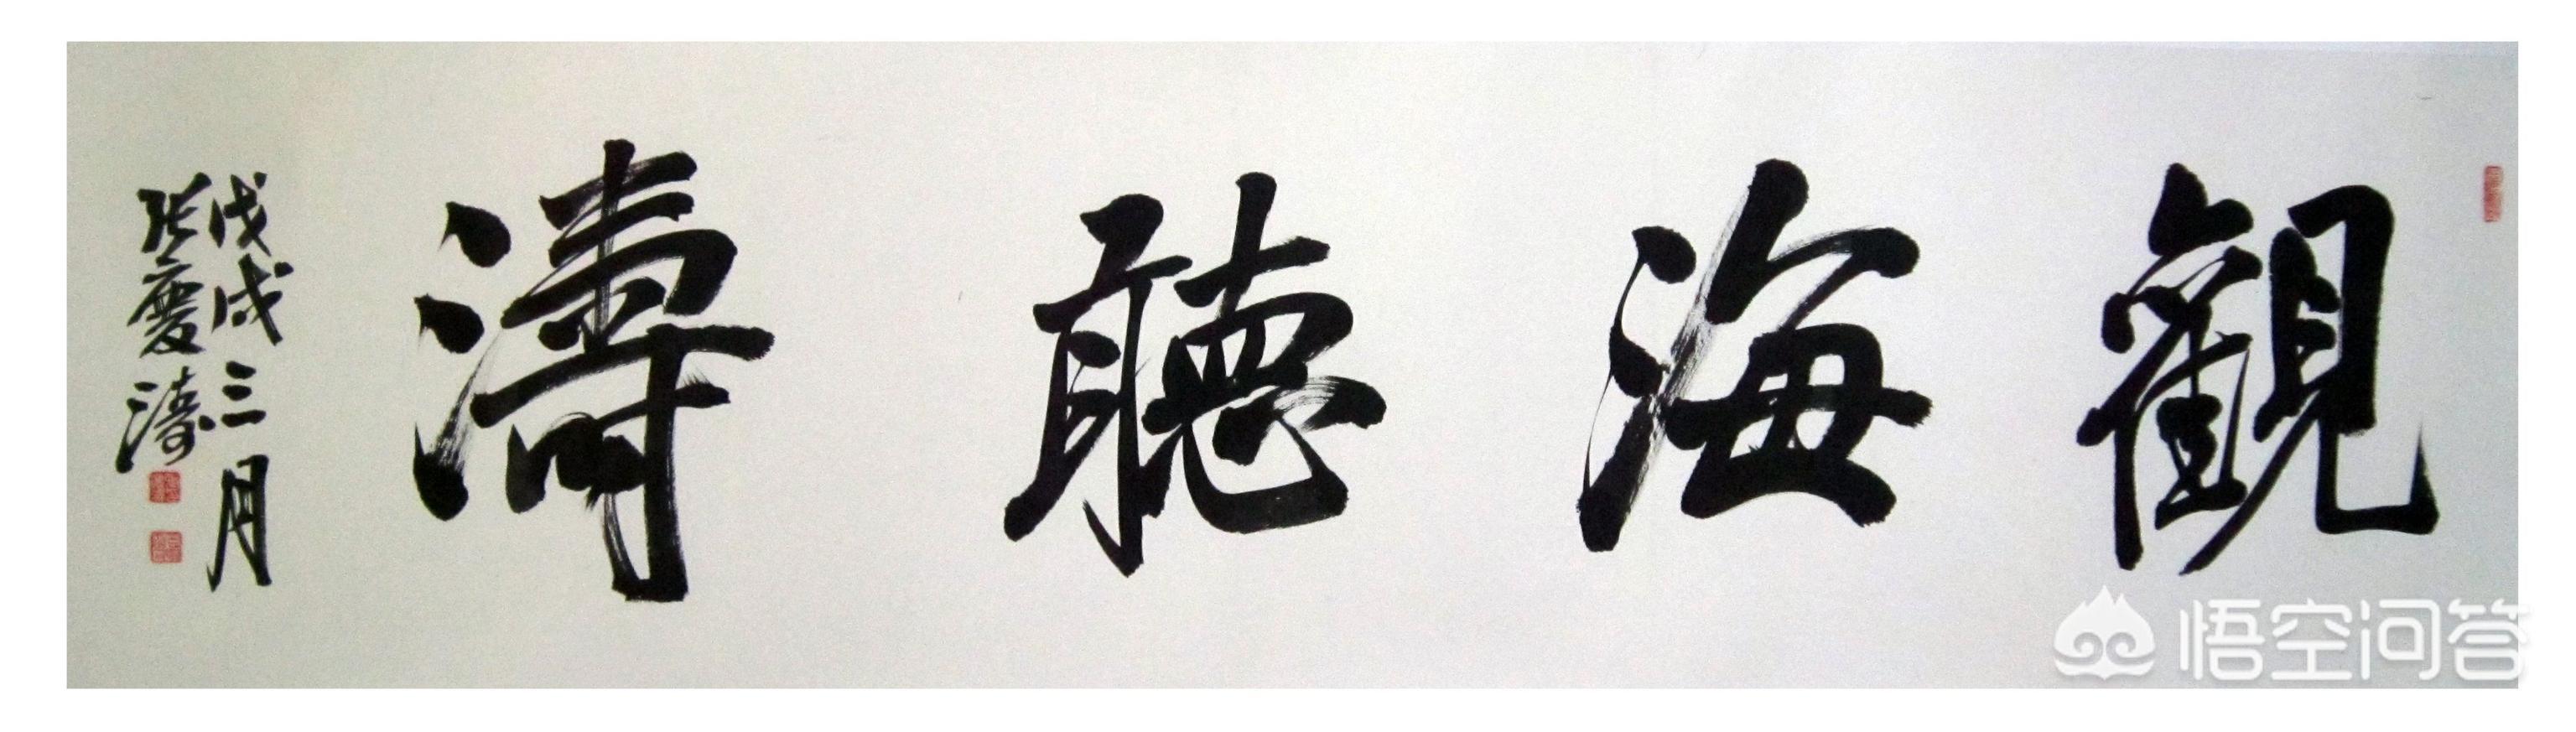 觀海聽濤
戊戌三月
張慶濤
悟空问答